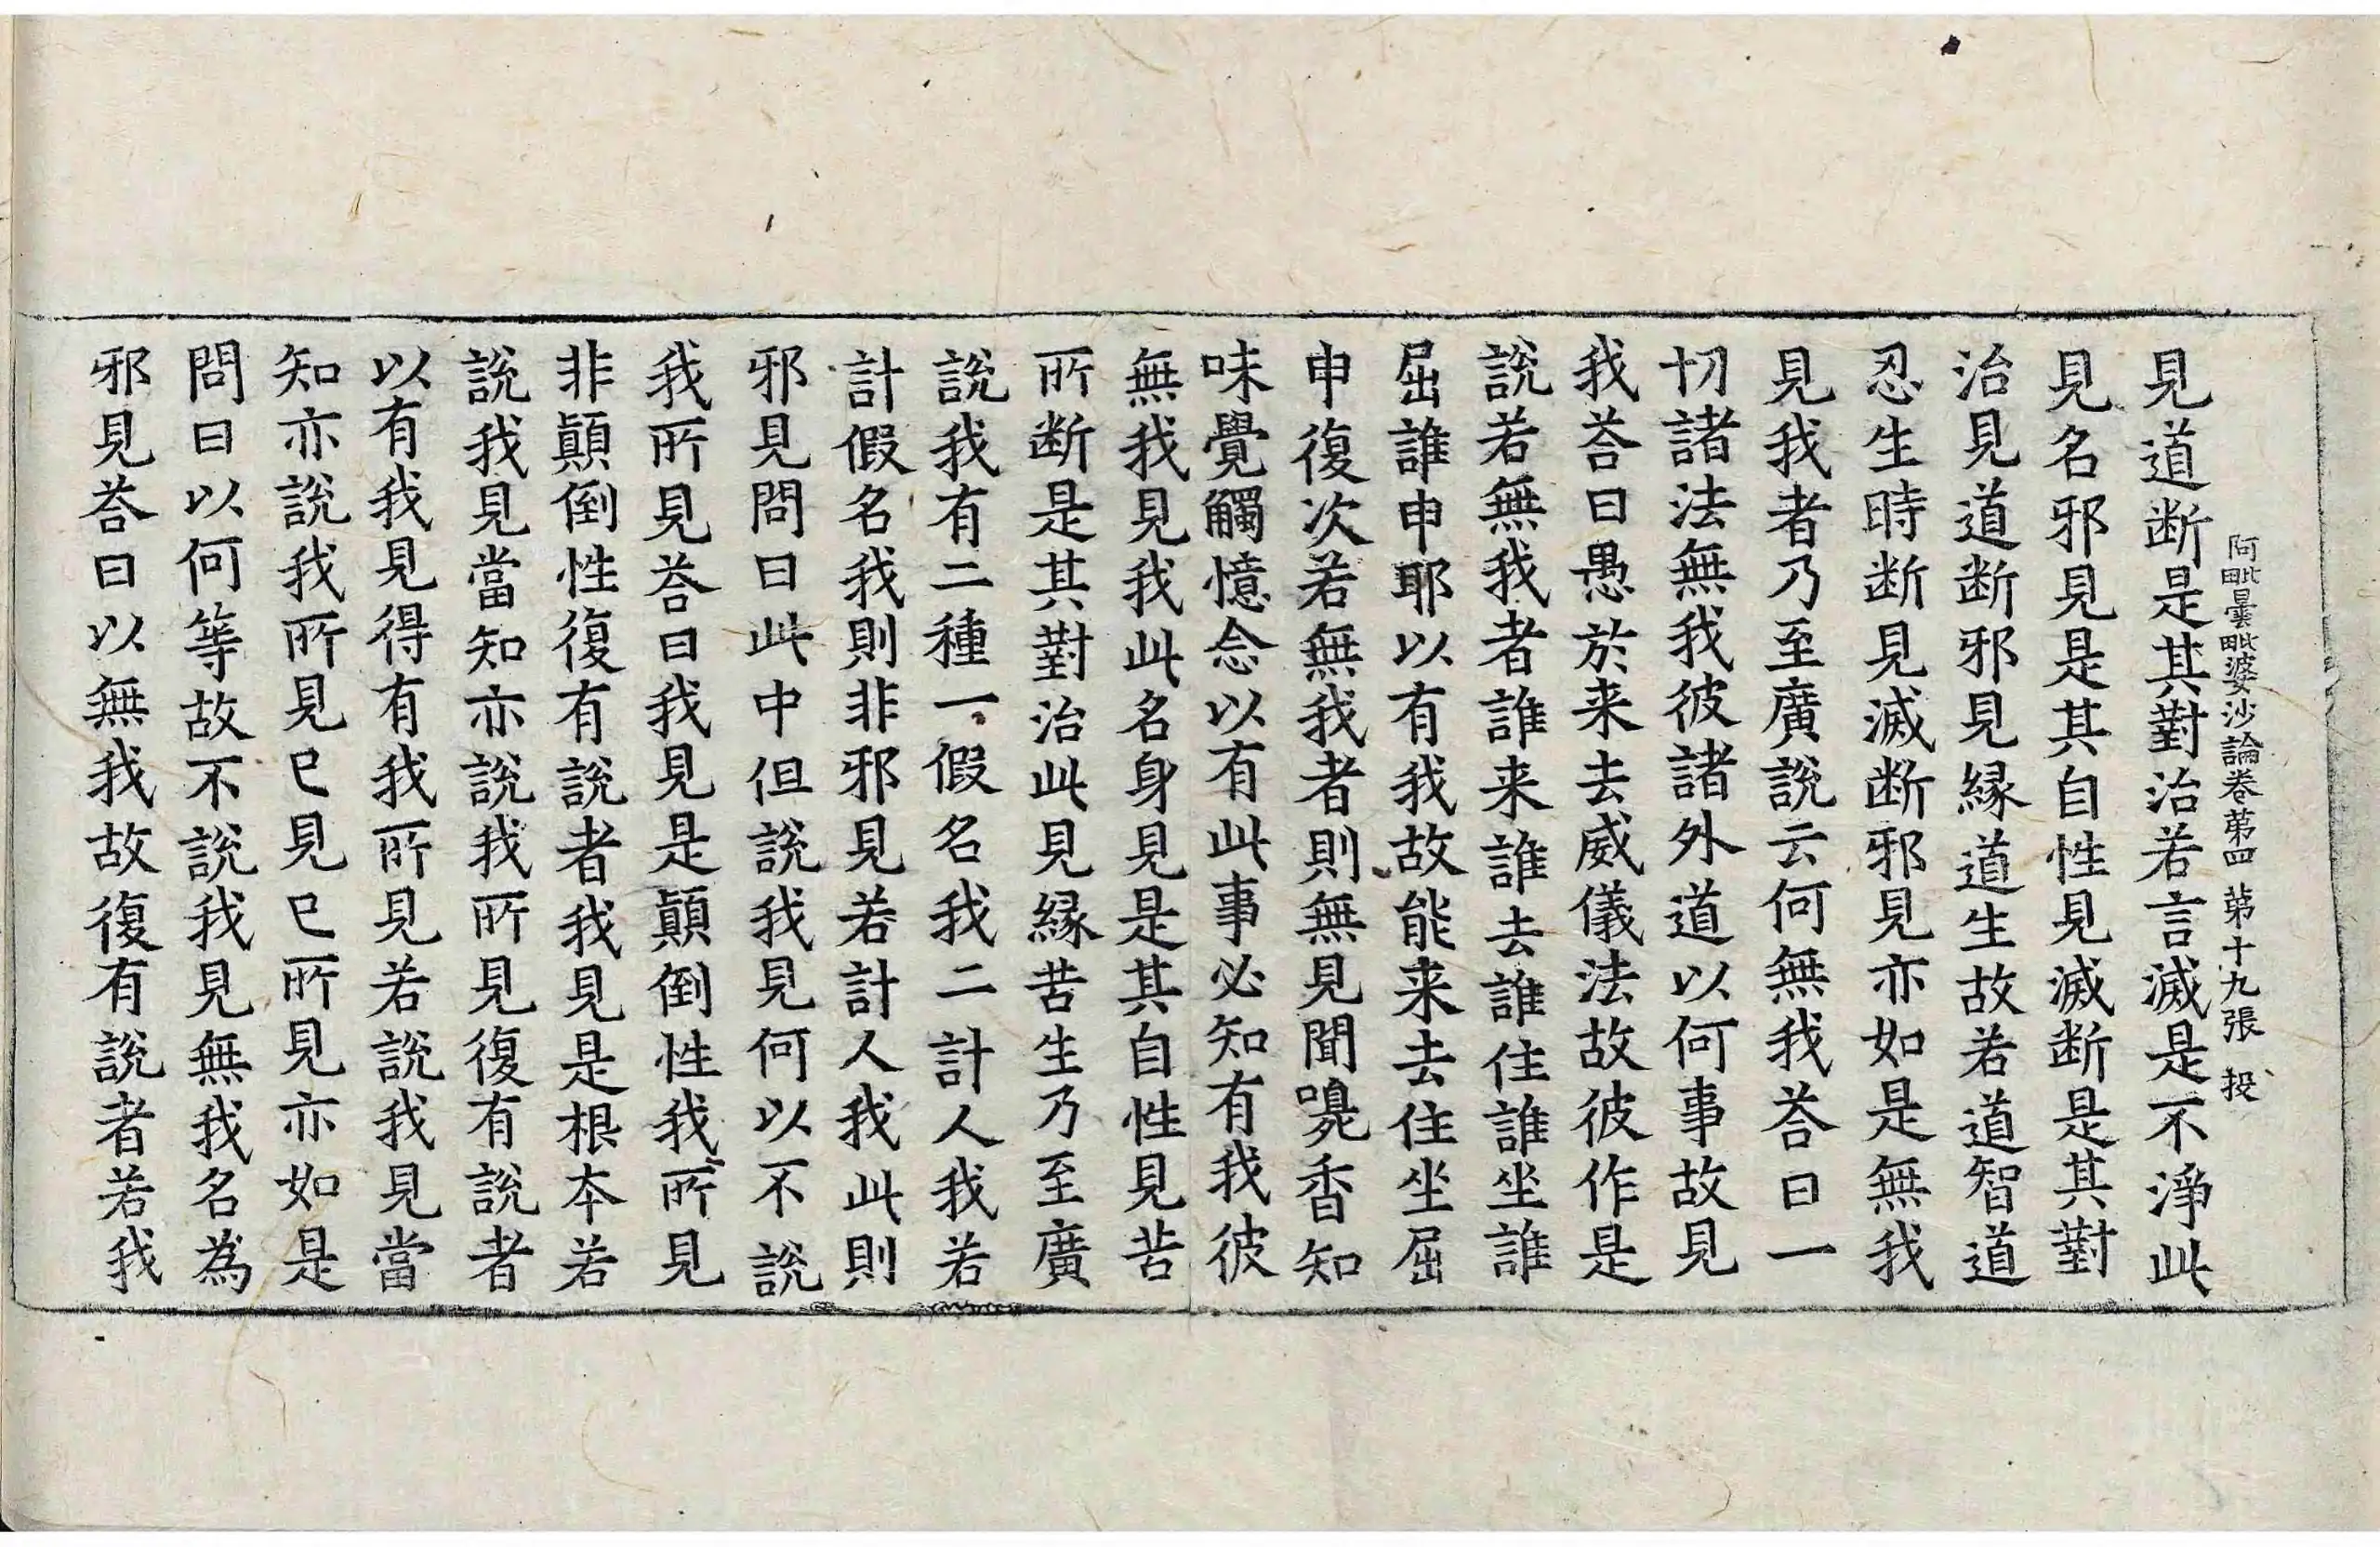 阿毗曇毗婆沙論卷第四 第十九張 投
見道断是其對治若言滅是不淨此
見名邪見是其自性見滅断是其對
治見道断邪見緣道生故若道智道
忍生時断見滅断邪見亦如是無我
見我者乃至廣說云何無我荅曰一
切諸法無我彼諸外道以何事故見
我荅曰愚於来去威儀法故彼作是
說若無我者誰来誰去誰住誰坐誰
屈誰申耶以有我故能来去住坐屈
申復次若無我者則無見聞嗅香知
味覺觸憶念以有此事必知有我彼
無我見我此名身見是其自性見苦
所断是其對治此見緣苦生乃至廣
說我有二種一假名我二計人我若
計假名我則非邪見若計人我此則
邪見問曰此中但說我見何以不說
我所見荅曰我見是顛倒性我所見
非顛倒性復有說者我見是根本若
說我見當知亦說我所見復有說者
以有我見得有我所見若說我見當
知亦說我所見已見已所見亦如是
問曰以何等故不說我見無我名為
邪見荅曰以無我故復有說者若我